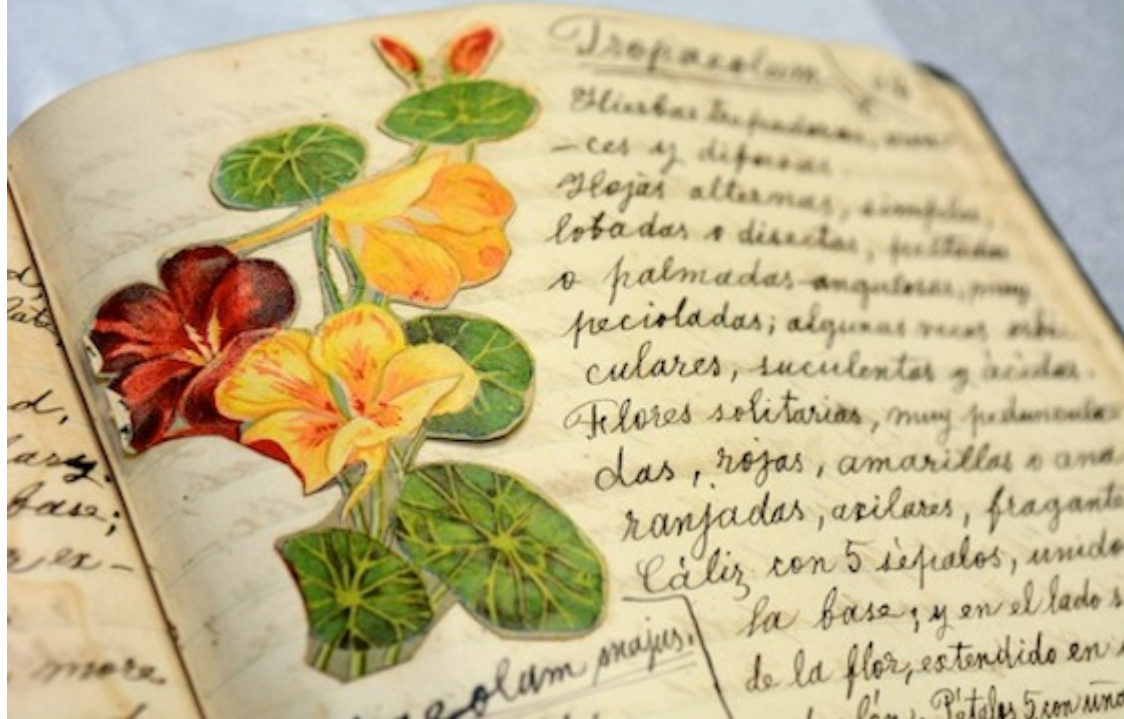 Tropaeolum
Hierbas trepadoras,
-ces y difusas.
Hojas alternas, simples,
lobadas o disectas, peltadas
o palmadas-angulosas, muy
pecioladas; algunas veces orbi-
culares, suculentas y ácidas.
Flores solitarias, muy peduncula-
das, rojas, amarillas o ana-
ranjadas, axilares, fragante
Cáliz con 5 sépalos, unido
la base; y en el lado s
de la flor, extendido en
Pétalos 5 con uña
eolum majus.
d,
base;
ex-
more